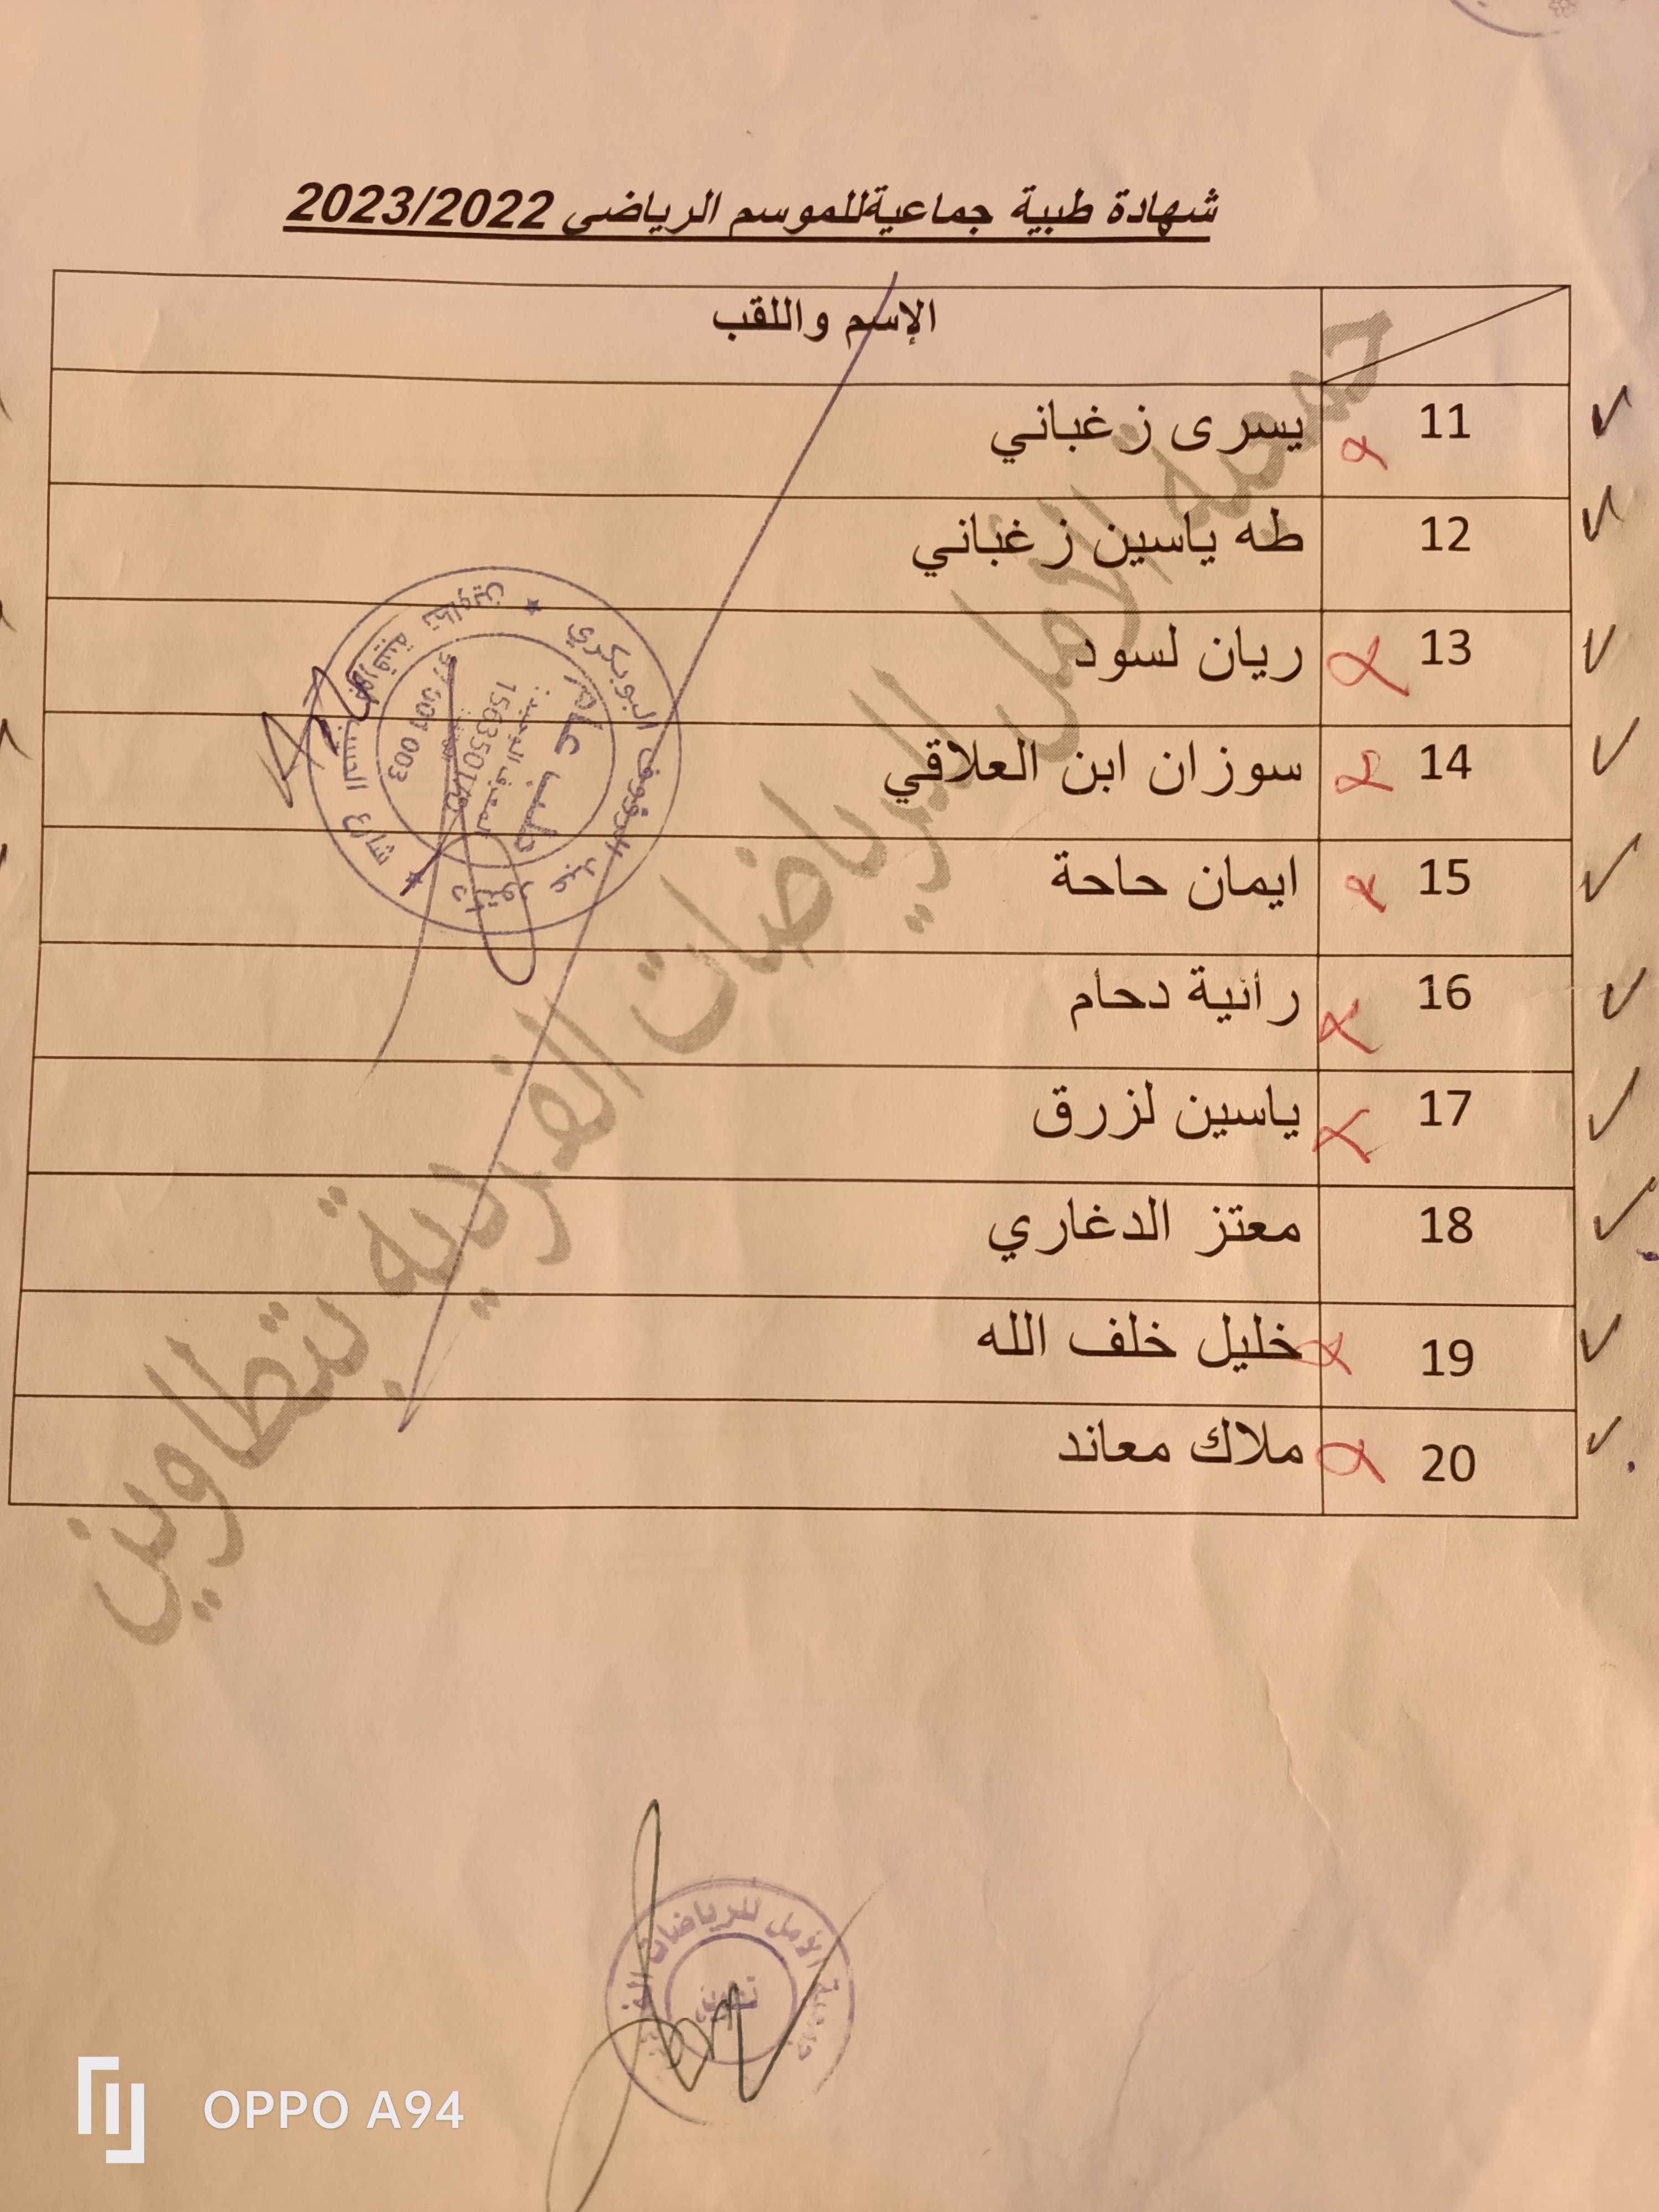 شهادة طبية جماعيةللموسم الرياضي 2023/2022
الإسم واللقب
11 يسرى زغباني
12 طه ياسين زغباني
13 ريان لسود
14 سوزان ابن العلاقي
15 ايمان حاحة
16 رانية دحام
17 ياسين لزرق
18 معتز الدغاري
19 خليل خلف الله
20 ملاك معاند
جمعية الأمل للرياضات الفردية بتطاوين
البوبكري
طب عام
المعرف الوحيد:
97 501 003
الأمل للرياضات
تطاوين
OPPO A94